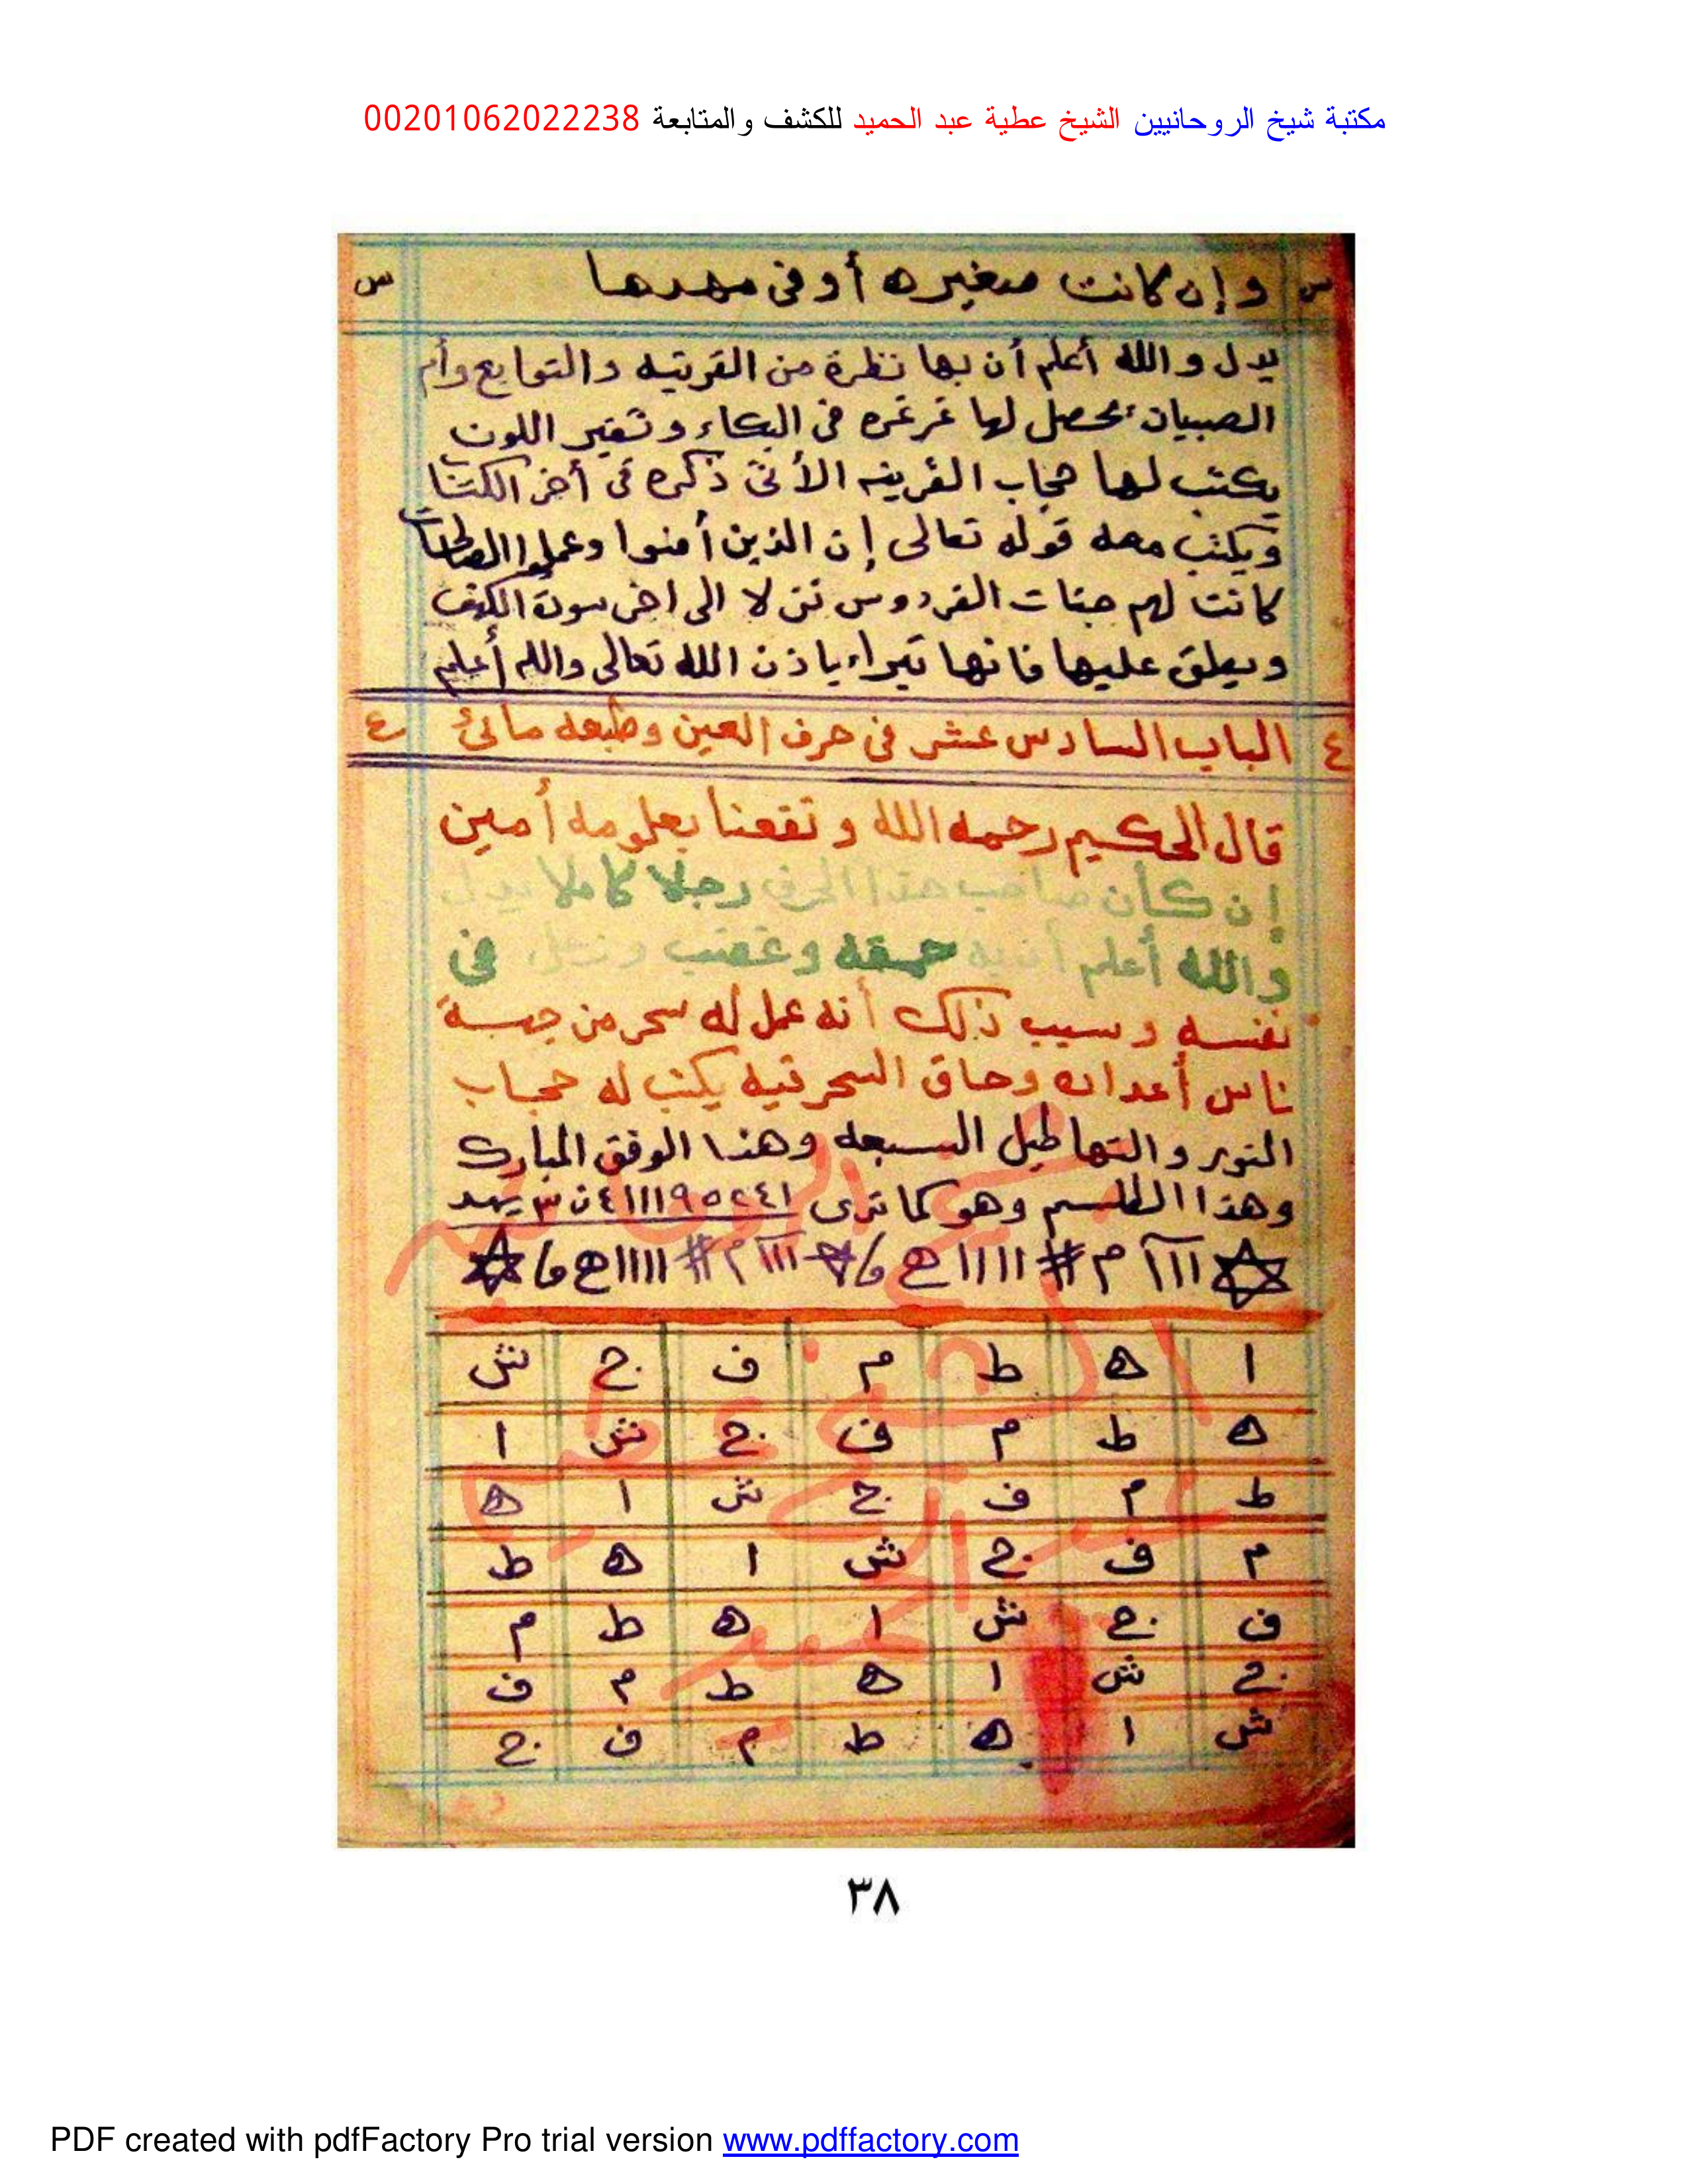 مكتبة شيخ الروحانيين الشيخ عطية عبد الحميد للكشف والمتابعة 00201062022238
س وإن كانت صغيره أو فى مهدها س
يدل والله أعلم أن بها نظرة من القرينه والتوابع وأم
الصبيان يحصل لها غرغره فى البكاء وتغير اللون
يكتب لها حجاب القرينه الأتى ذكره فى أخر الكتاب
ويكتب معه قوله تعالى إن الذين أمنوا وعملوا الصالحات
كانت لهم جنات الفردوس نزلا الى اخر سورة الكهف
ويعلق عليها فانها تبراء باذن الله تعالى والله أعلم
ع الباب السادس عشر فى حرف العين وطبعه مائى ع
قال الحكيم رحمه الله ونفعنا بعلومه أمين
إن كان صاحب هذا الحرف رجلا كاملا يدل
والله أعلم أن به حمقه وغضب وزعل فى
نفسه وسبب ذلك أنه عمل له سحر من جهة
ناس أعدائه وحاق السحر فيه يكتب له حجاب
النور والتهاطيل السبعه وهذا الوفق المبارك
وهذا الطلسم وهو كما ترى
ا ه ط م ف ج ش
ه ط م ف ج ش ا
ط م ف ج ش ا ه
م ف ج ش ا ه ط
ف ج ش ا ه ط م
ج ش ا ه ط م ف
ش ا ه ط م ف ج
٣٨
PDF created with pdfFactory Pro trial version www.pdffactory.com